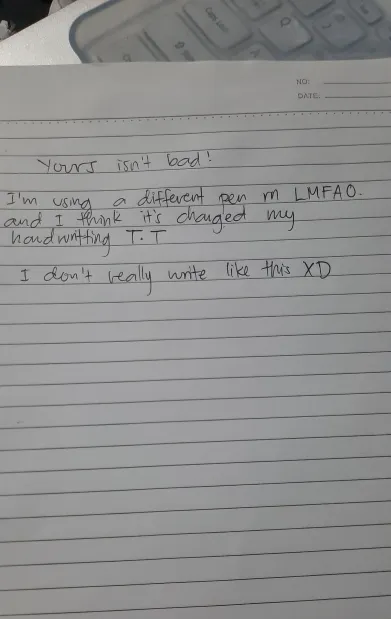 NO:
DATE:
Yours isn't bad!
I'm using a different pen rn LMFAO.
and I think it's changed my
handwritting T.T
I don't really write like this XD